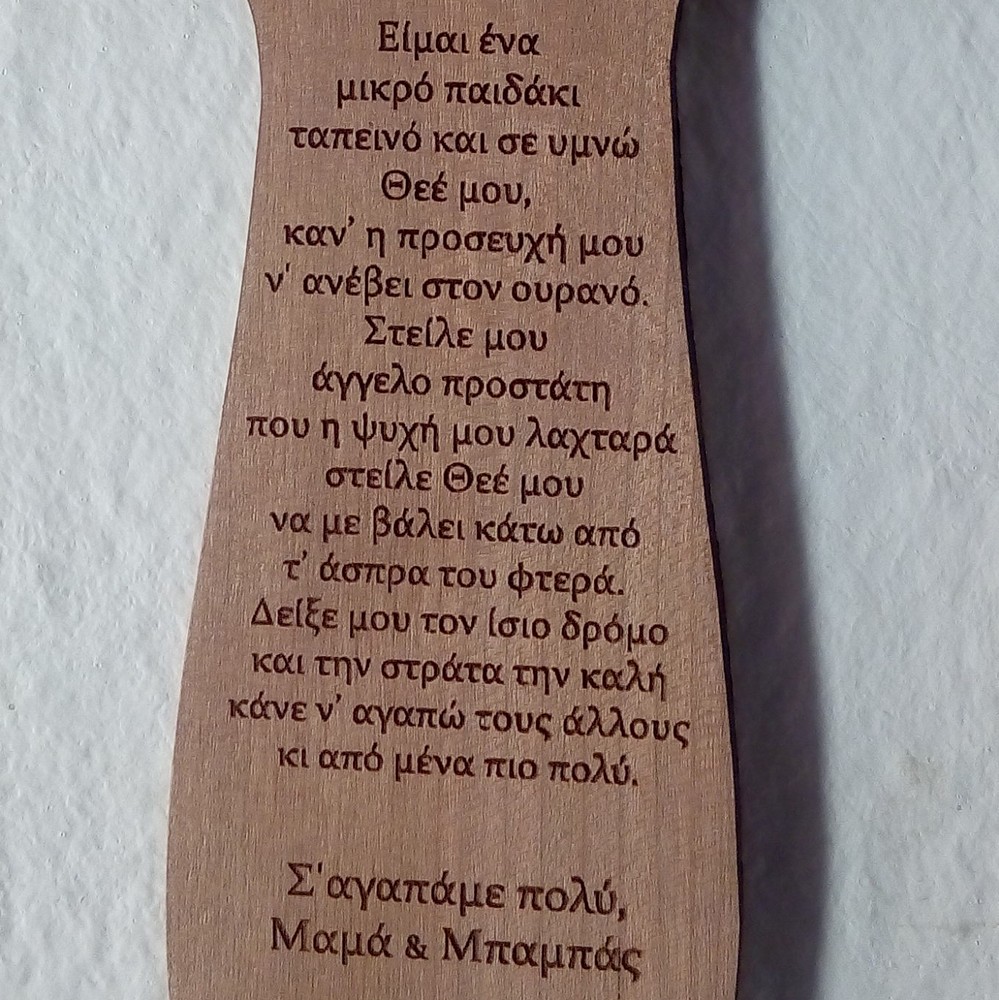 Είμαι ένα
μικρό παιδάκι
ταπεινό και σε υμνώ
Θεέ μου,
καν’ η προσευχή μου
ν' ανέβει στον ουρανό.
Στείλε μου
άγγελο προστάτη
που η ψυχή μου λαχταρά
στείλε Θεέ μου
να με βάλει κάτω από
τ’ άσπρα του φτερά.
Δείξε μου τον ίσιο δρόμο
και την στράτα την καλή
κάνε ν’ αγαπώ τους άλλους
κι από μένα πιο πολύ.
Σ'αγαπάμε πολύ,
Μαμά & Μπαμπάς